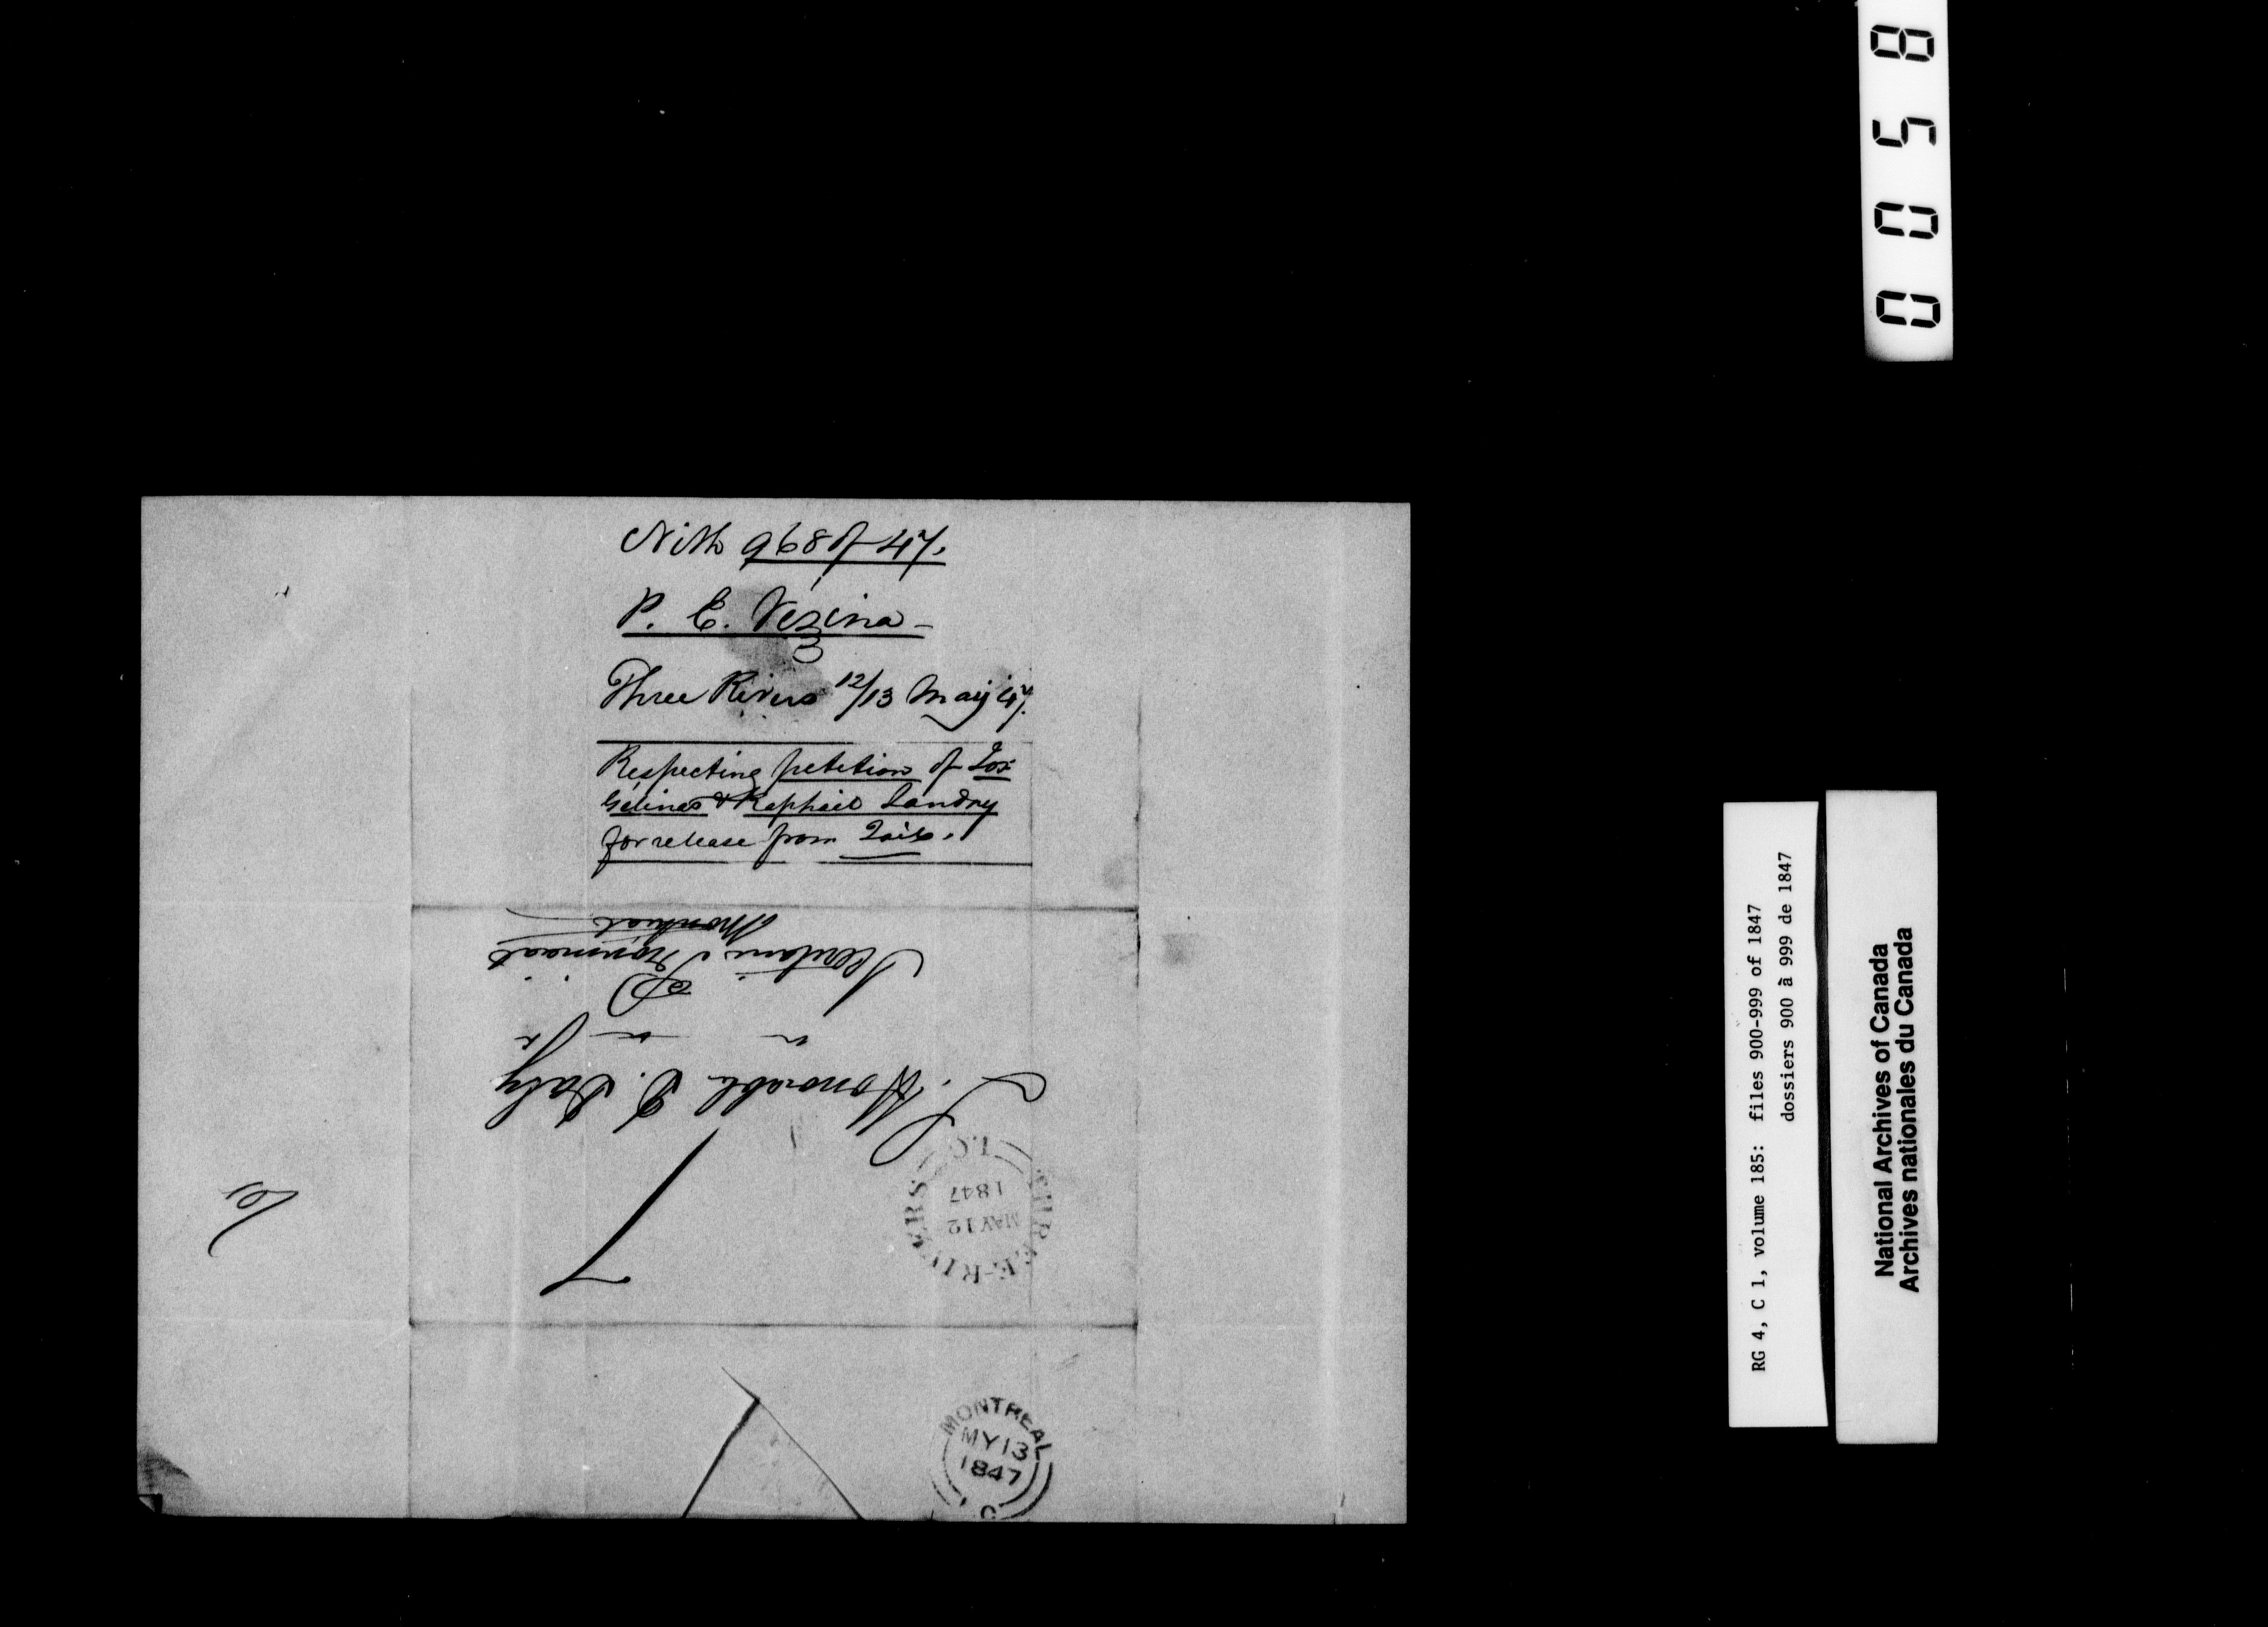 With 968 of 47.
P. E. Vezina -
Three Rivers 12/13 May 47.
Respecting petition of Jos
Gélinas & Raphael Landry
for release from Jail.
L'Honorable D. Daly
Secretaire Provincial
Montreal
THREE-RIVERS L.C.
MAY 12
1847
MONTREAL
MY 13
1847
C
0058
RG 4, C 1, volume 185: files 900-999 of 1847
dossiers 900 à 999 de 1847
National Archives of Canada
Archives nationales du Canada